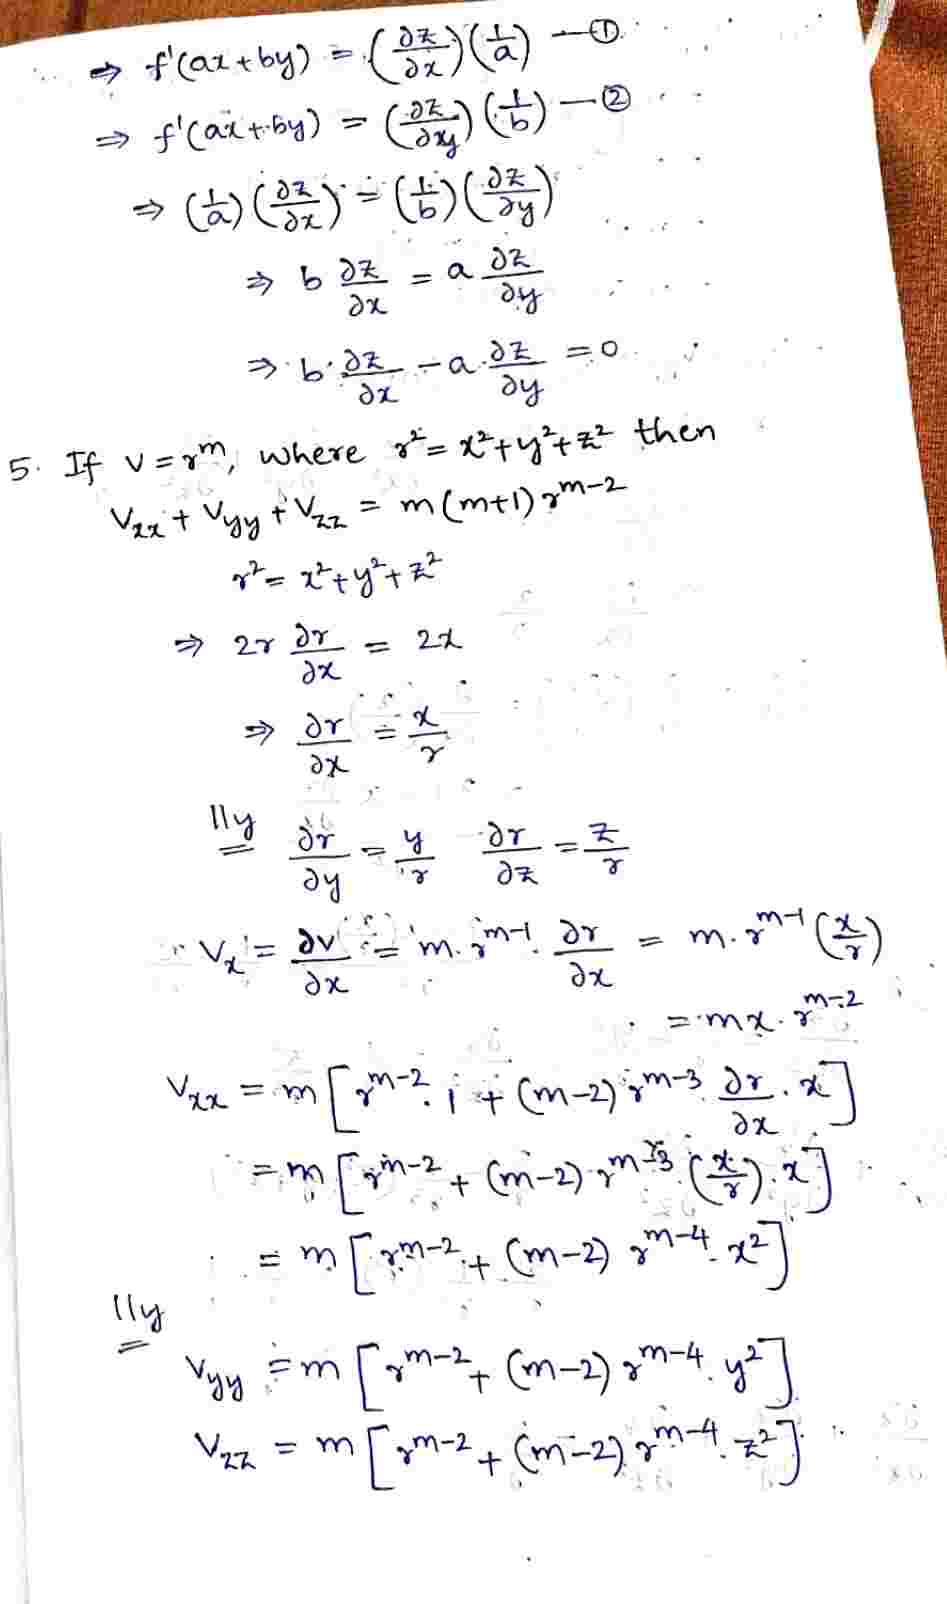 ⇒ f'(ax+by) = (∂z/∂x)(1/a) —①
⇒ f'(ax+by) = (∂z/∂y)(1/b) —②
⇒ (1/a)(∂z/∂x) = (1/b)(∂z/∂y)
⇒ b ∂z/∂x = a ∂z/∂y
⇒ b·∂z/∂x - a·∂z/∂y = 0
5. If v = r^m, where r² = x²+y²+z² then
V_xx + V_yy + V_zz = m(m+1) r^(m-2)
r² = x²+y²+z²
⇒ 2r ∂r/∂x = 2x
⇒ ∂r/∂x = x/r
||ly ∂r/∂y = y/r ∂r/∂z = z/r
V_x = ∂v/∂x = m·r^(m-1)·∂r/∂x = m·r^(m-1)(x/r)
= mx·r^(m-2)
V_xx = m[r^(m-2)·1 + (m-2) r^(m-3) ∂r/∂x·x]
= m[r^(m-2) + (m-2)·r^(m-3)(x/r)·x]
= m[r^(m-2) + (m-2) r^(m-4)·x²]
||ly
V_yy = m[r^(m-2) + (m-2) r^(m-4)·y²]
V_zz = m[r^(m-2) + (m-2) r^(m-4)·z²]